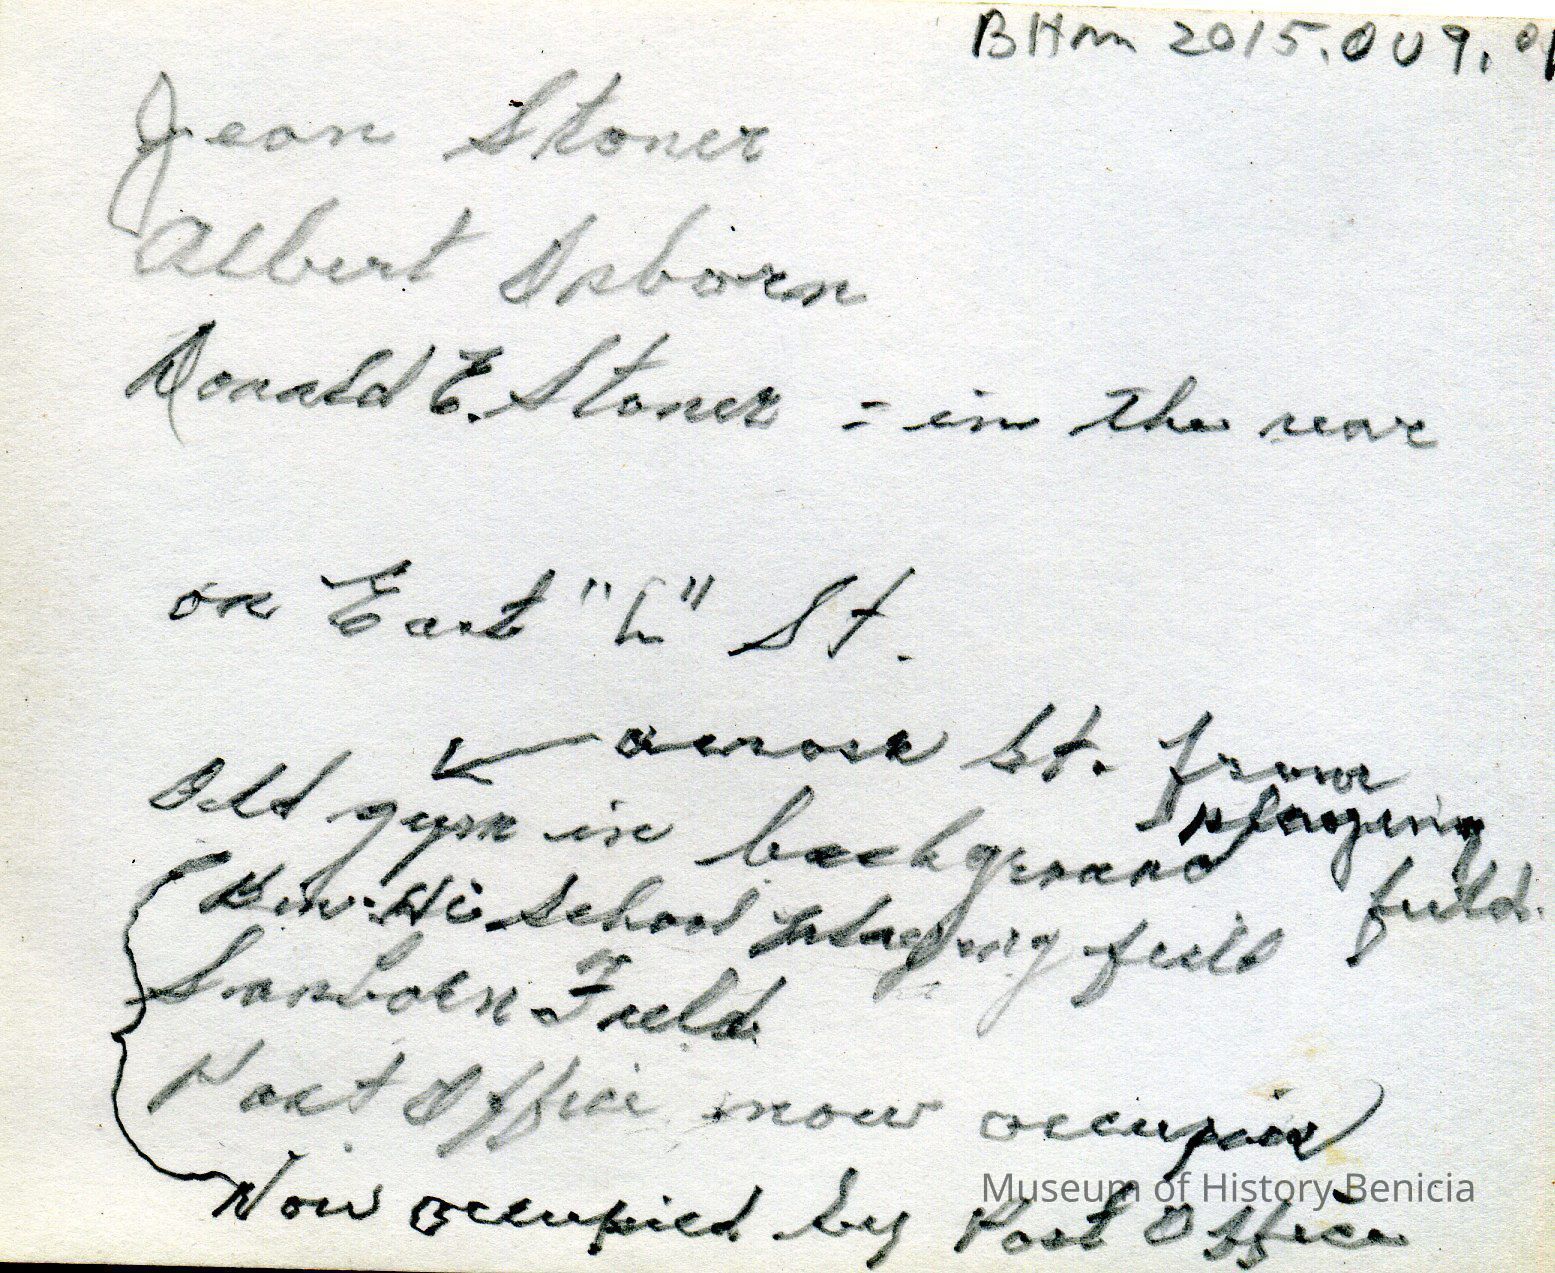 BHm 2015.009.
Jean Stoner
Albert Osborn
Donald E. Stoner = in the rear
on East "L" St.
across St. from
playing
field.
Old gym in background
Ben. Hi School playing field
Sanborn Field
Post Office now occupies
Now occupied by Post Office
Museum of History Benicia